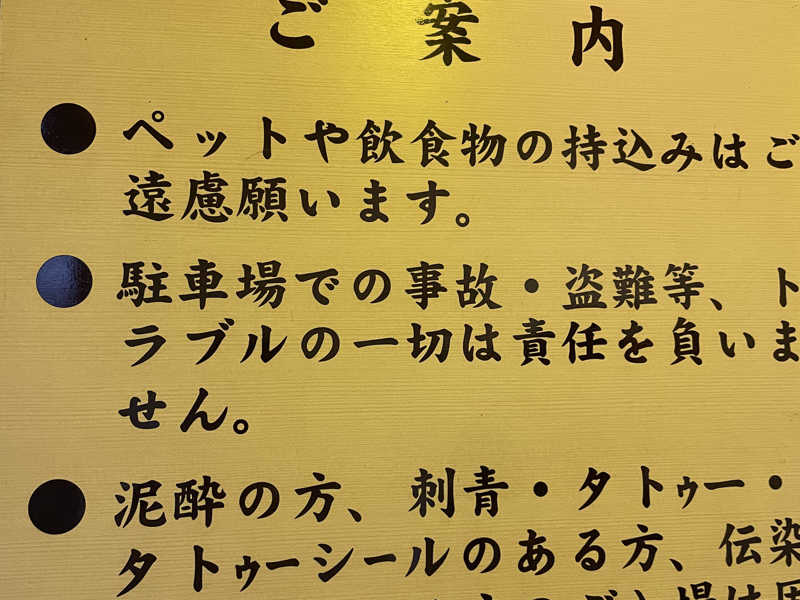 ご案内
●ペットや飲食物の持込みはご
遠慮願います。
●駐車場での事故・盗難等、ト
ラブルの一切は責任を負いま
せん。
●泥酔の方、刺青・タトゥー・
タトゥーシールのある方、伝染